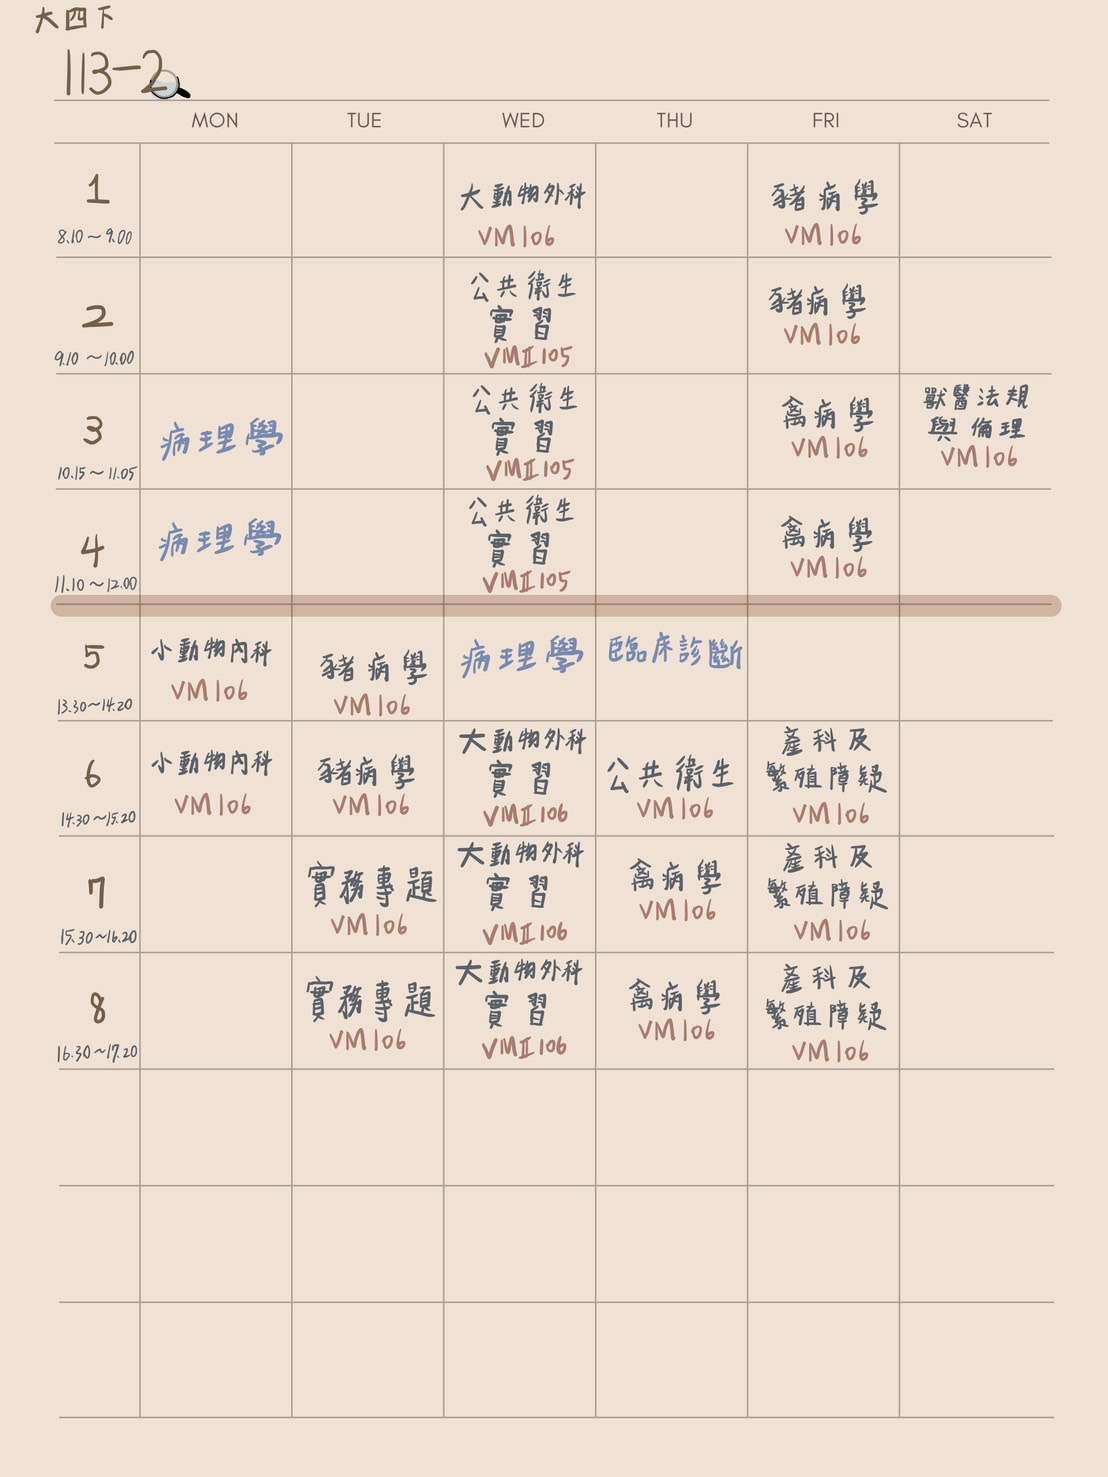 大四下
113-2
MON TUE WED THU FRI SAT
1
8.10～9.00
大動物外科
VM106
豬病學
VM106
2
9.10～10.00
公共衛生
實習
VMII105
豬病學
VM106
3
10.15～11.05
病理學
公共衛生
實習
VMII105
禽病學
VM106
獸醫法規
與倫理
VM106
4
11.10～12.00
病理學
公共衛生
實習
VMII105
禽病學
VM106
5
13.30～14.20
小動物內科
VM106
豬病學
VM106
病理學
臨床診斷
6
14.30～15.20
小動物內科
VM106
豬病學
VM106
大動物外科
實習
VMII106
公共衛生
VM106
產科及
繁殖障疑
VM106
7
15.30～16.20
實務專題
VM106
大動物外科
實習
VMII106
禽病學
VM106
產科及
繁殖障疑
VM106
8
16.30～17.20
實務專題
VM106
大動物外科
實習
VMII106
禽病學
VM106
產科及
繁殖障疑
VM106